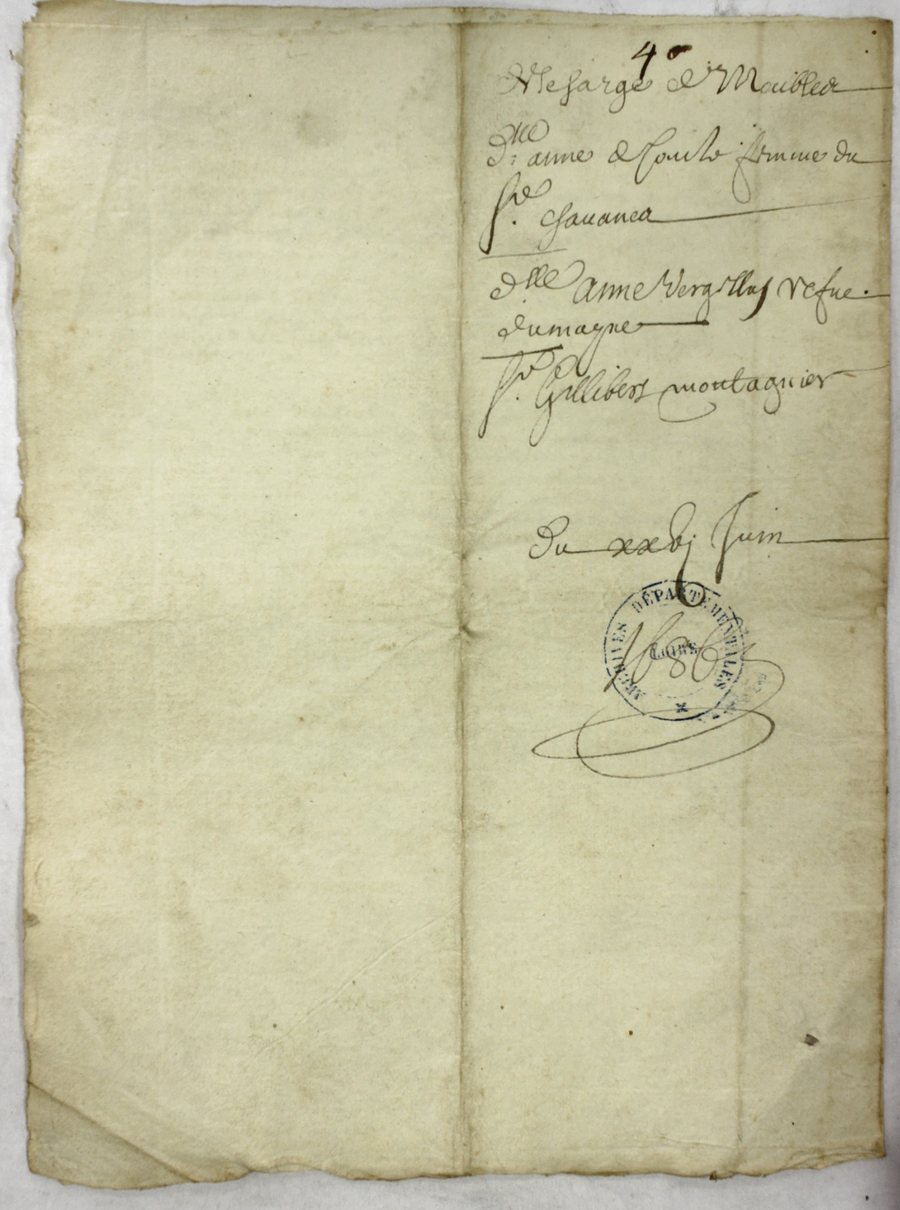 4°
Descharge de Meubles
d.lle anne de Comte femme du
Sr. Chavanes
dlle anne Vergilles vefve
dumayne
Sr. Gillibert montagnier
du xxvj Juin
1686
ARCHIVES DÉPARTEMENTALES
LOIRE